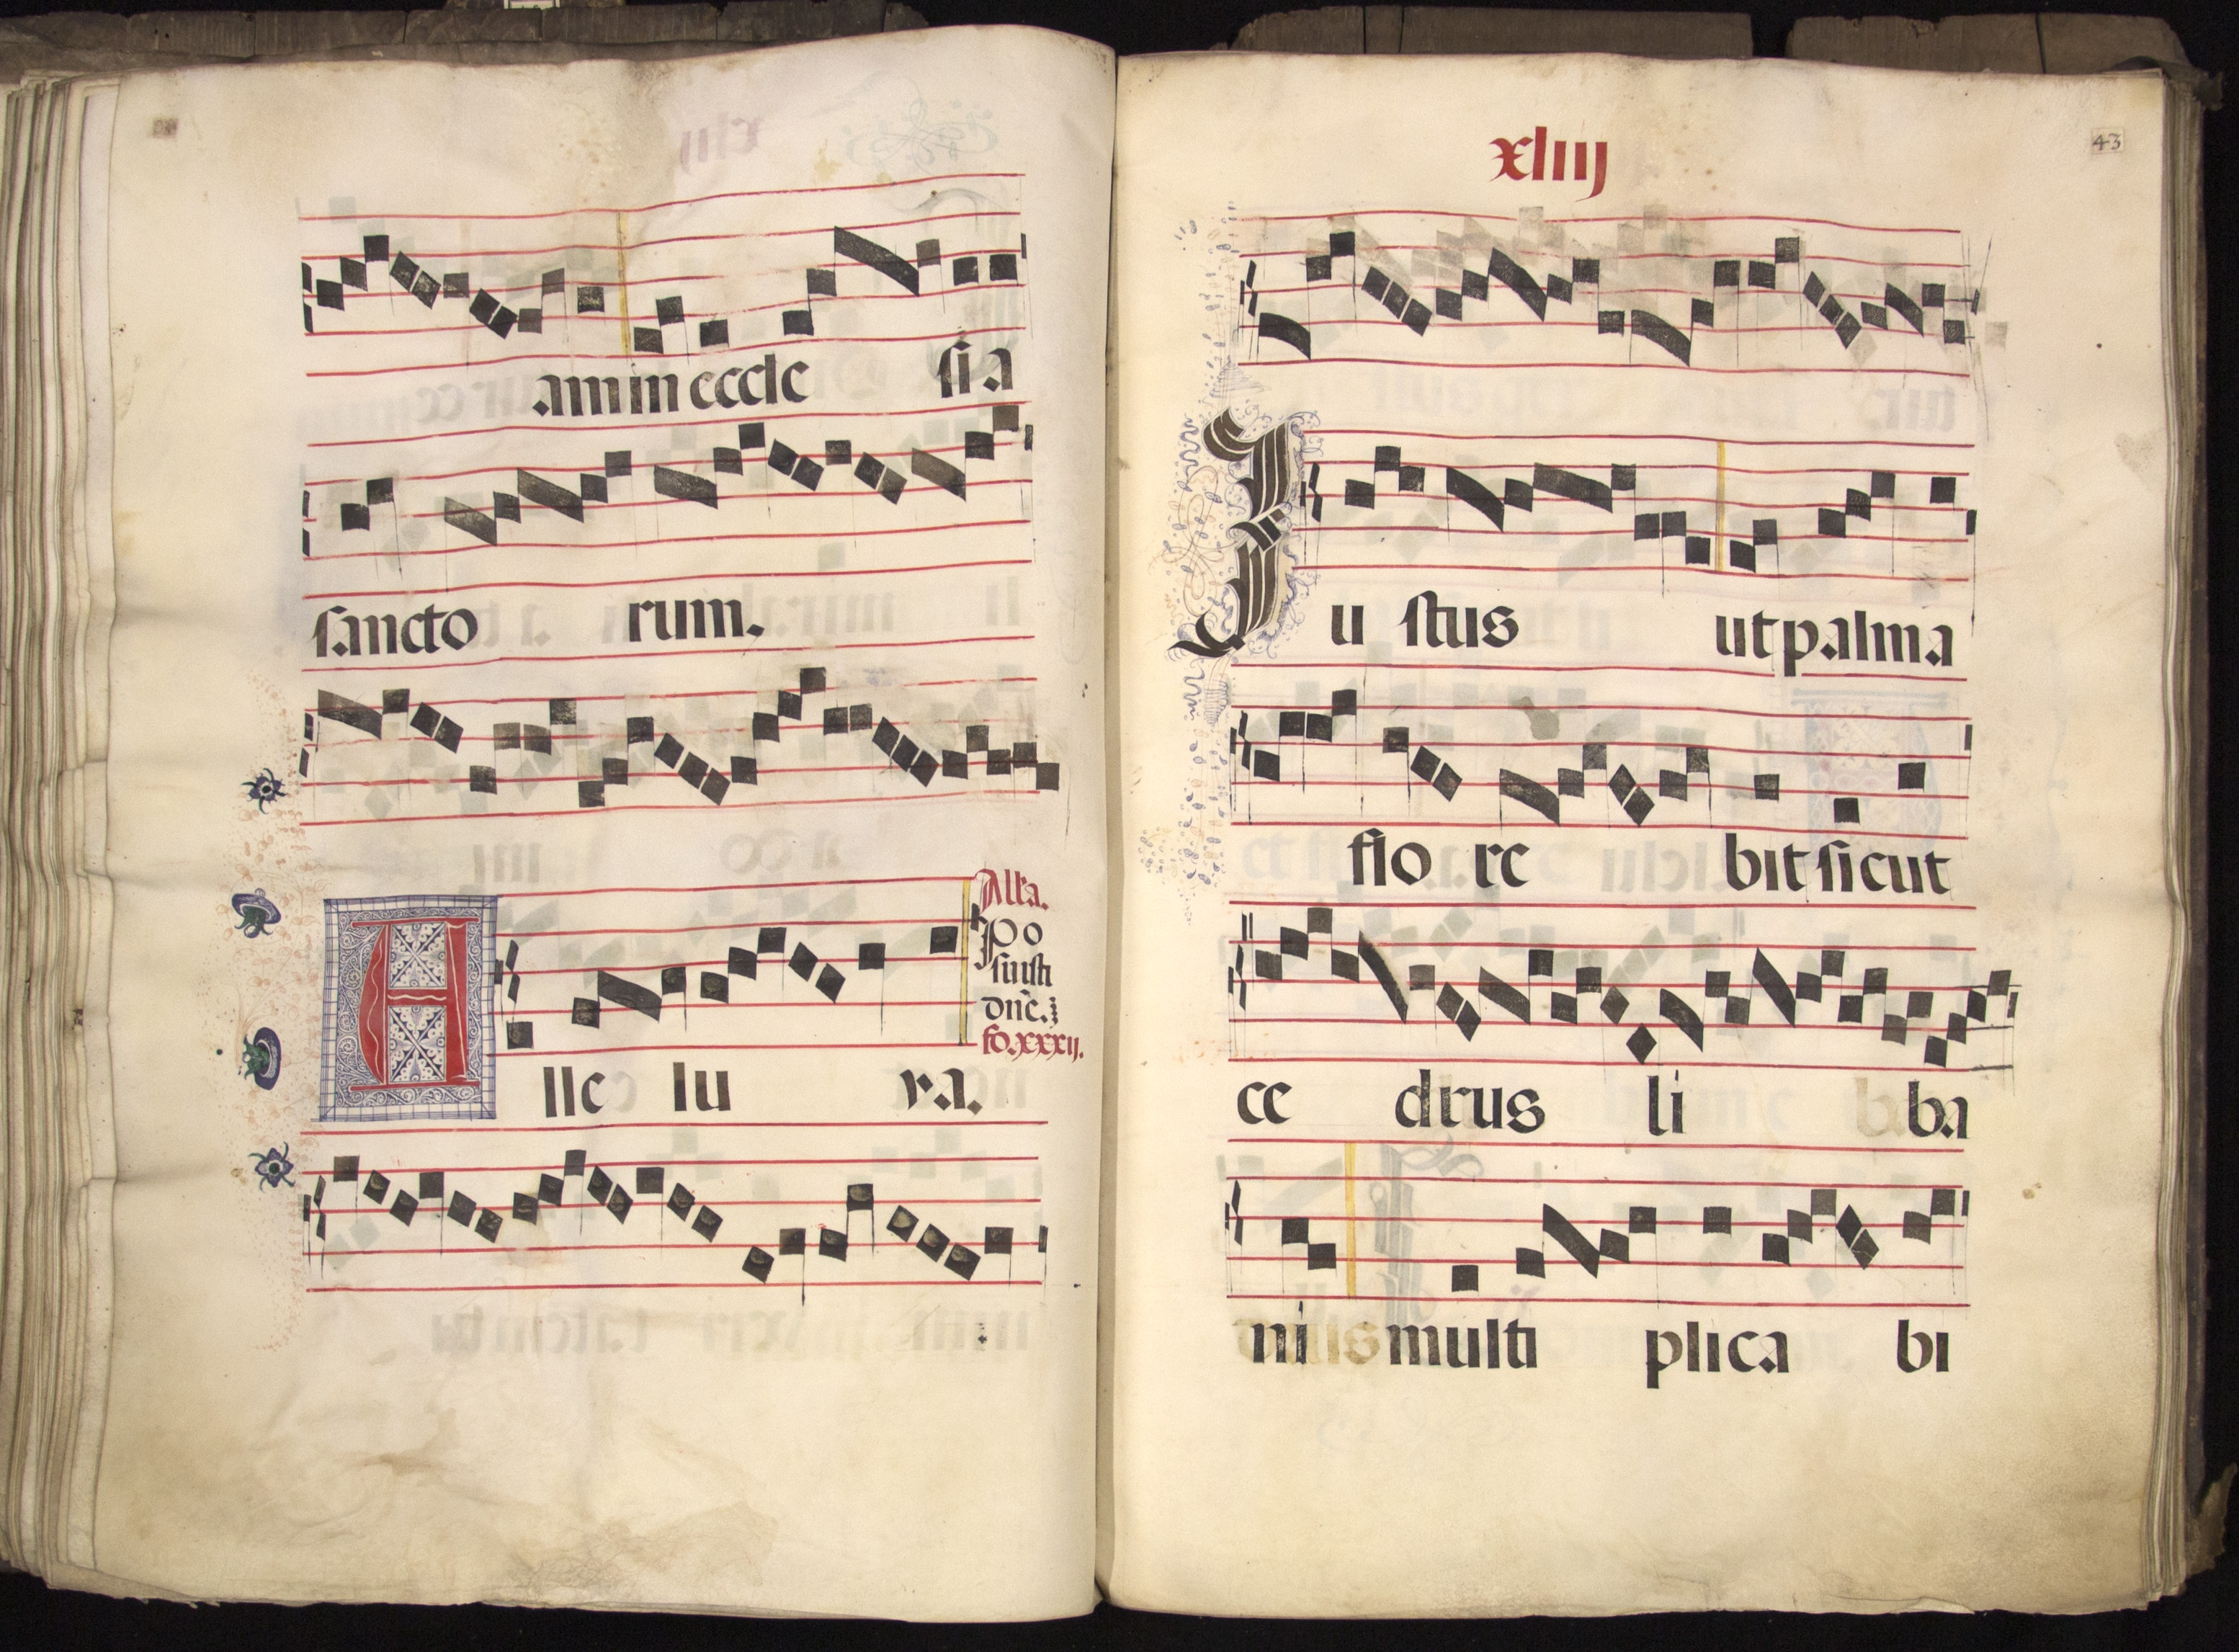 am in eccle sia
sancto rum.
Alle lu ya.
All'a.
Po
suisti
dn̄e.
fo.xxxij.
xliij
43
Iu stus ut palma
flo re bit sicut
ce drus li ba
ni multi plica bi